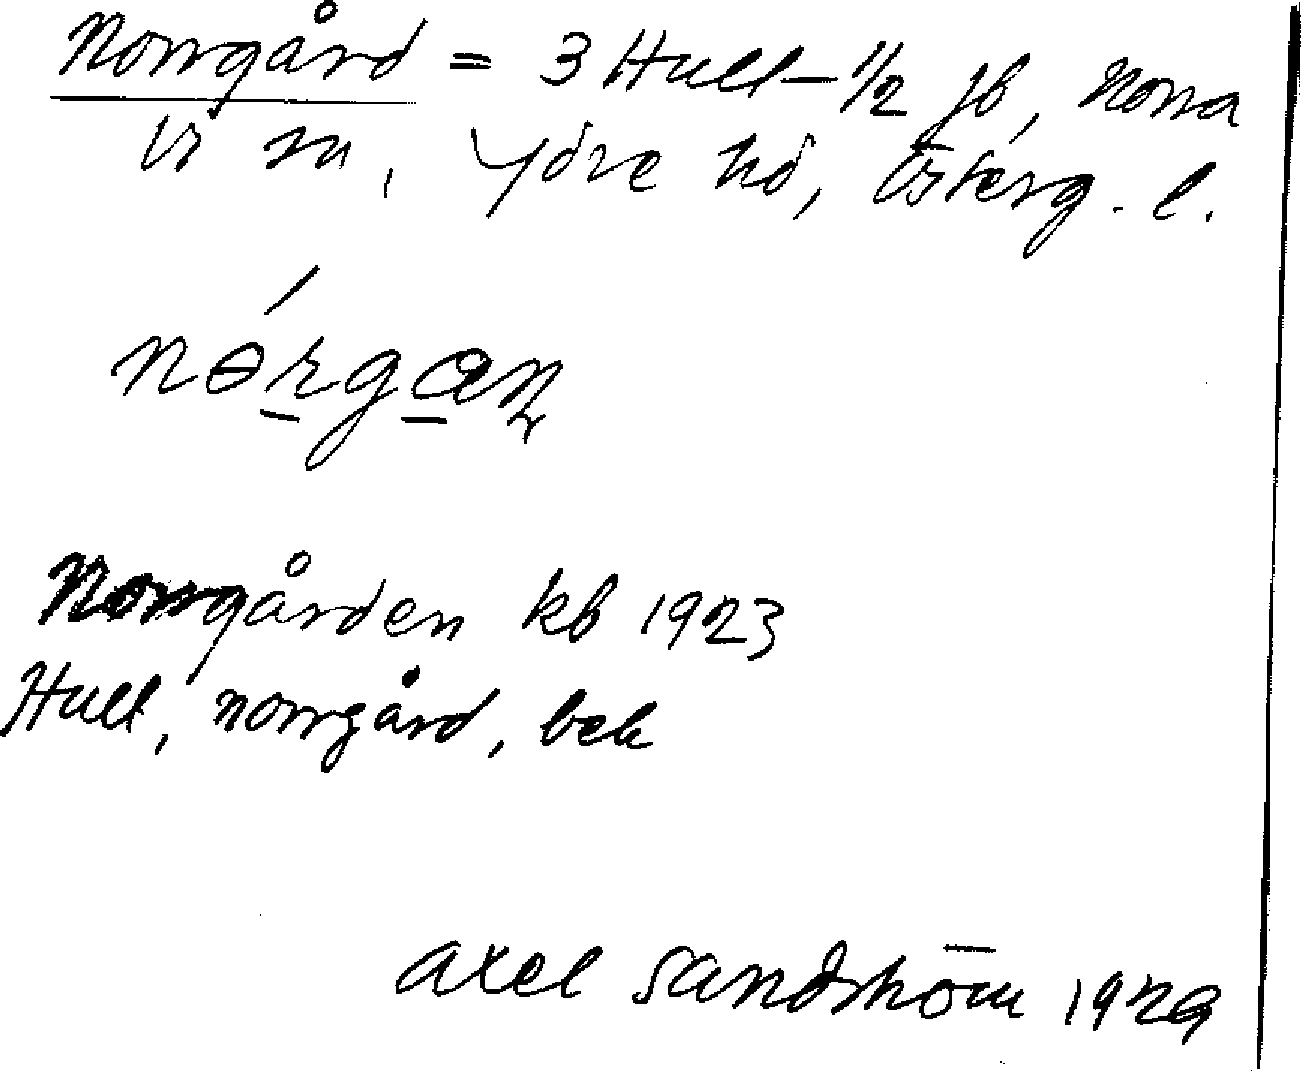 Norrgård = 3 Hull – 1/2 jb, Norra
Vi sn, Ydre hd, Österg. l.
Norrgården kb 1923
Hull, norrgård, bek
Axel Sandström 1929